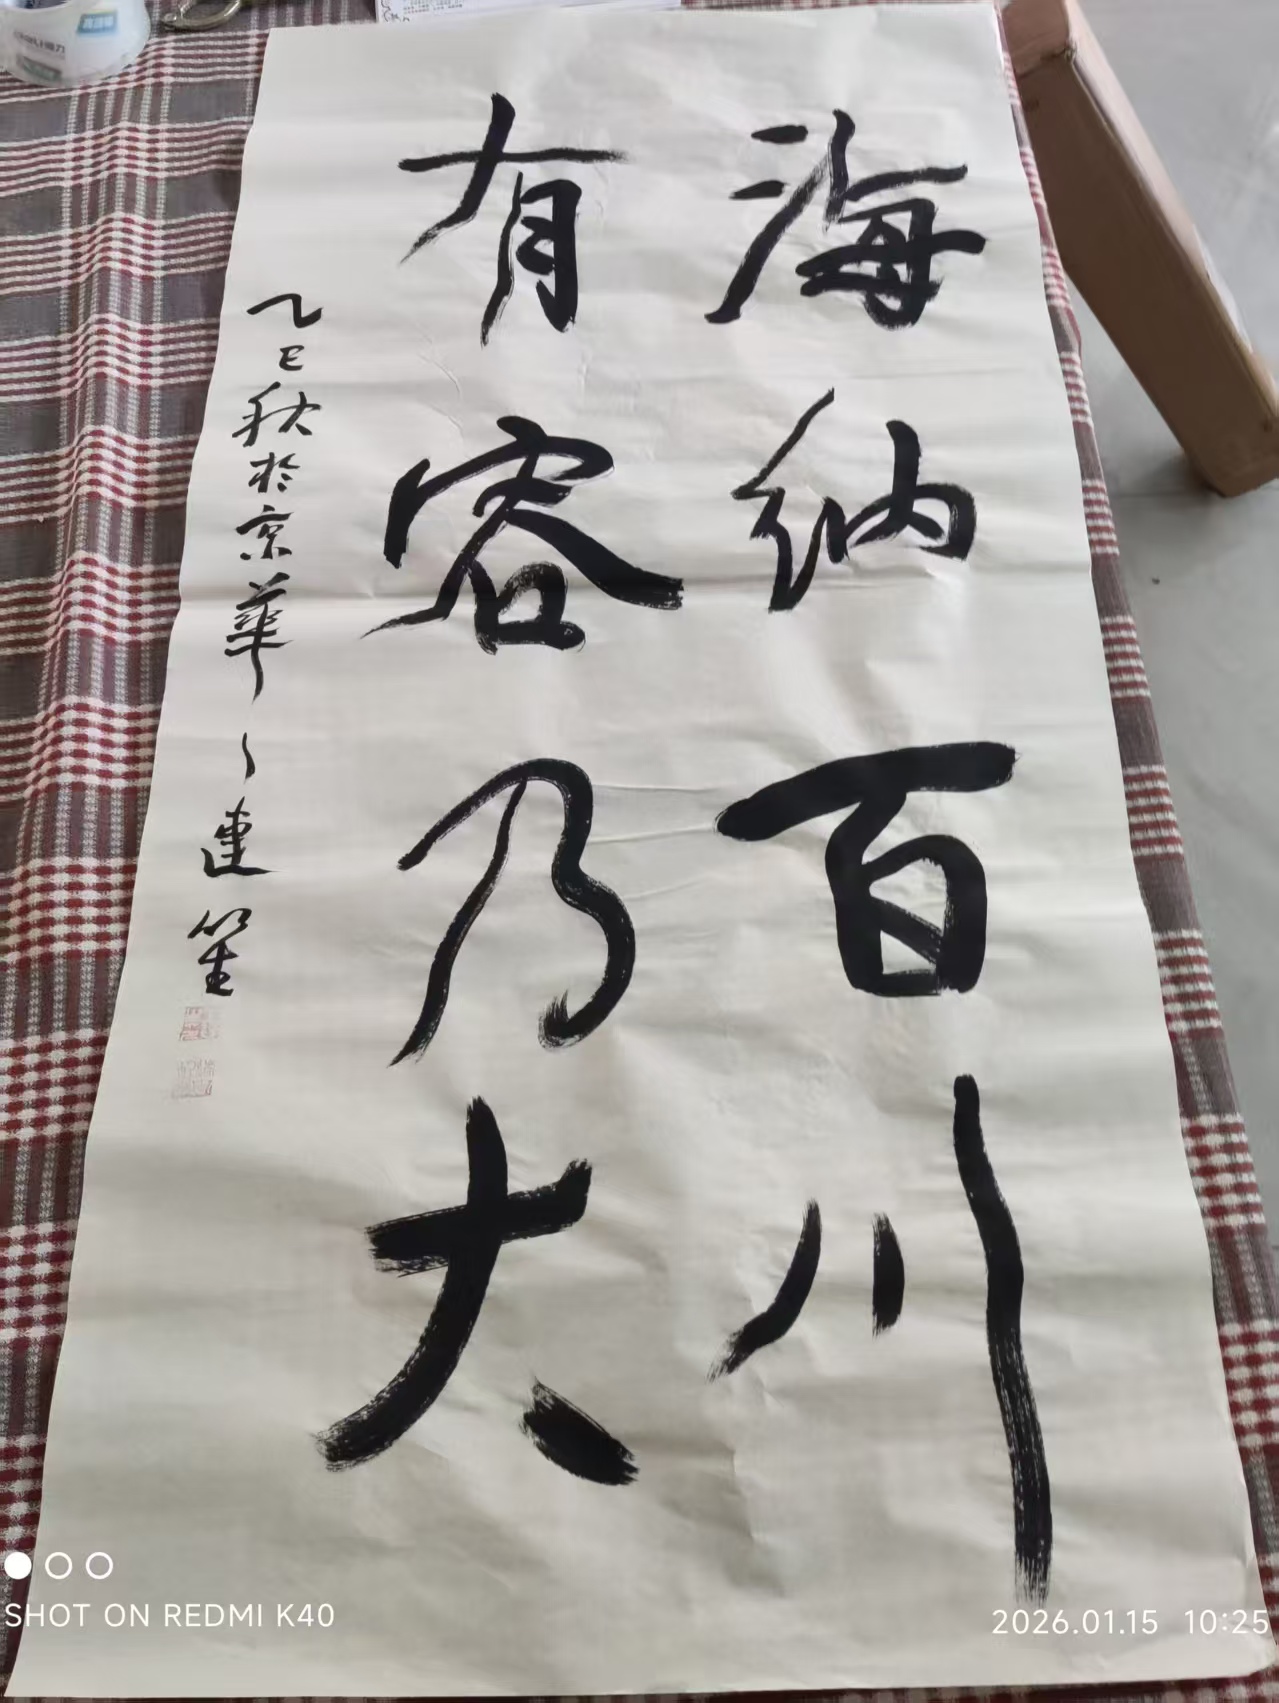 海纳百川
有容乃大
乙巳秋於京華
連笙
SHOT ON REDMI K40
2026.01.15 10:25